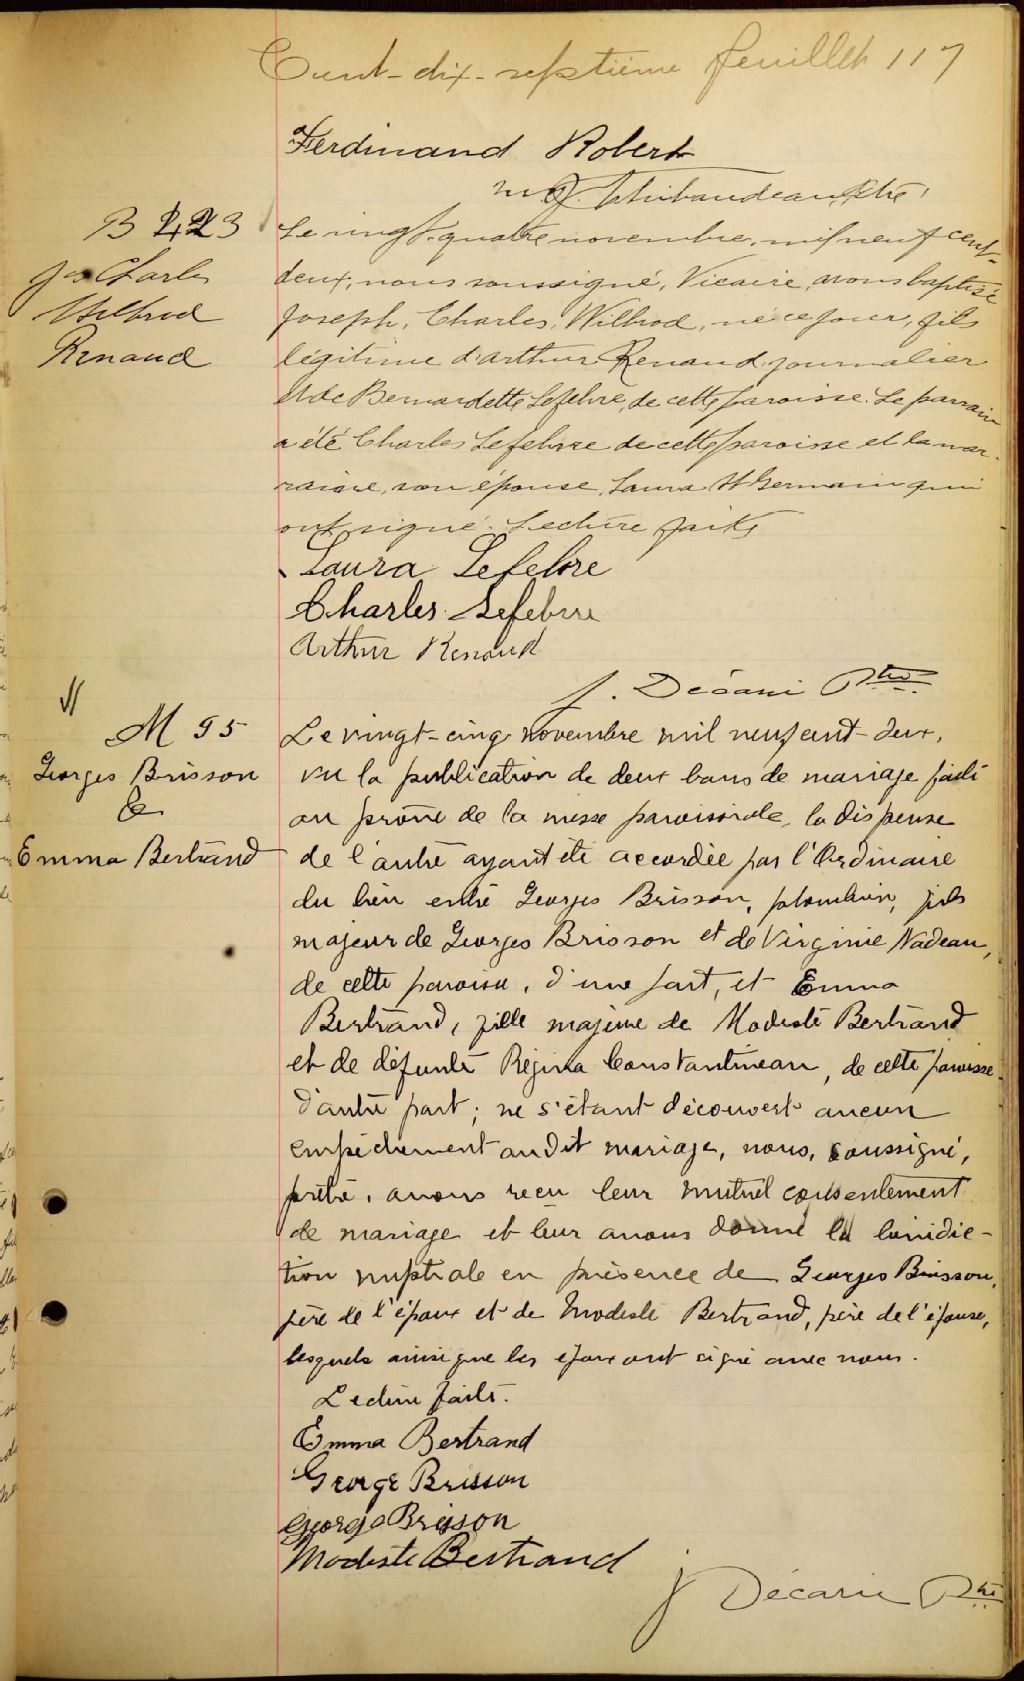 Cent-dix-septième feuillet 117
Ferdinand Robert
Thibaudeau Ptre
B 223
Jos Charles
Wilbrod
Renaud
Le vingt-quatre novembre, mil neuf cent-
deux, nous soussigné, Vicaire, avons baptisé
Joseph, Charles, Wilbrod, né ce jour, fils
légitime d'Arthur Renaud journalier
et de Bernardette Lefebvre, de cette paroisse. Le parrain
a été Charles Lefebvre de cette paroisse et la mar-
raine, son épouse, Laura St Germain qui
ont signé. Lecture faite
Laura Lefebvre
Charles Lefebvre
Arthur Renaud
J. Décarie Ptre
M 95
Georges Brisson
&
Emma Bertrand
Le vingt-cinq novembre mil neuf cent-deux,
vu la publication de deux bans de mariage faite
au prône de la messe paroissiale, la dispense
de l'autre ayant été accordée par l'Ordinaire
du lieu entre Georges Brisson, plombier, fils
majeur de Georges Brisson et de Virginie Nadeau,
de cette paroisse, d'une part, et Emma
Bertrand, fille majeure de Modeste Bertrand
et de défunte Régina Constantineau, de cette paroisse
d'autre part; ne s'étant découvert aucun
empêchement au dit mariage, nous, soussigné,
prêtre, avons reçu leur mutuel consentement
de mariage et leur avons donné la bénédic-
tion nuptiale en présence de Georges Brisson,
père de l'époux et de Modeste Bertrand, père de l'épouse,
lesquels ainsi que les époux ont signé avec nous.
Lecture faite.
Emma Bertrand
George Brisson
George Brisson
Modeste Bertrand
J Décarie Ptre